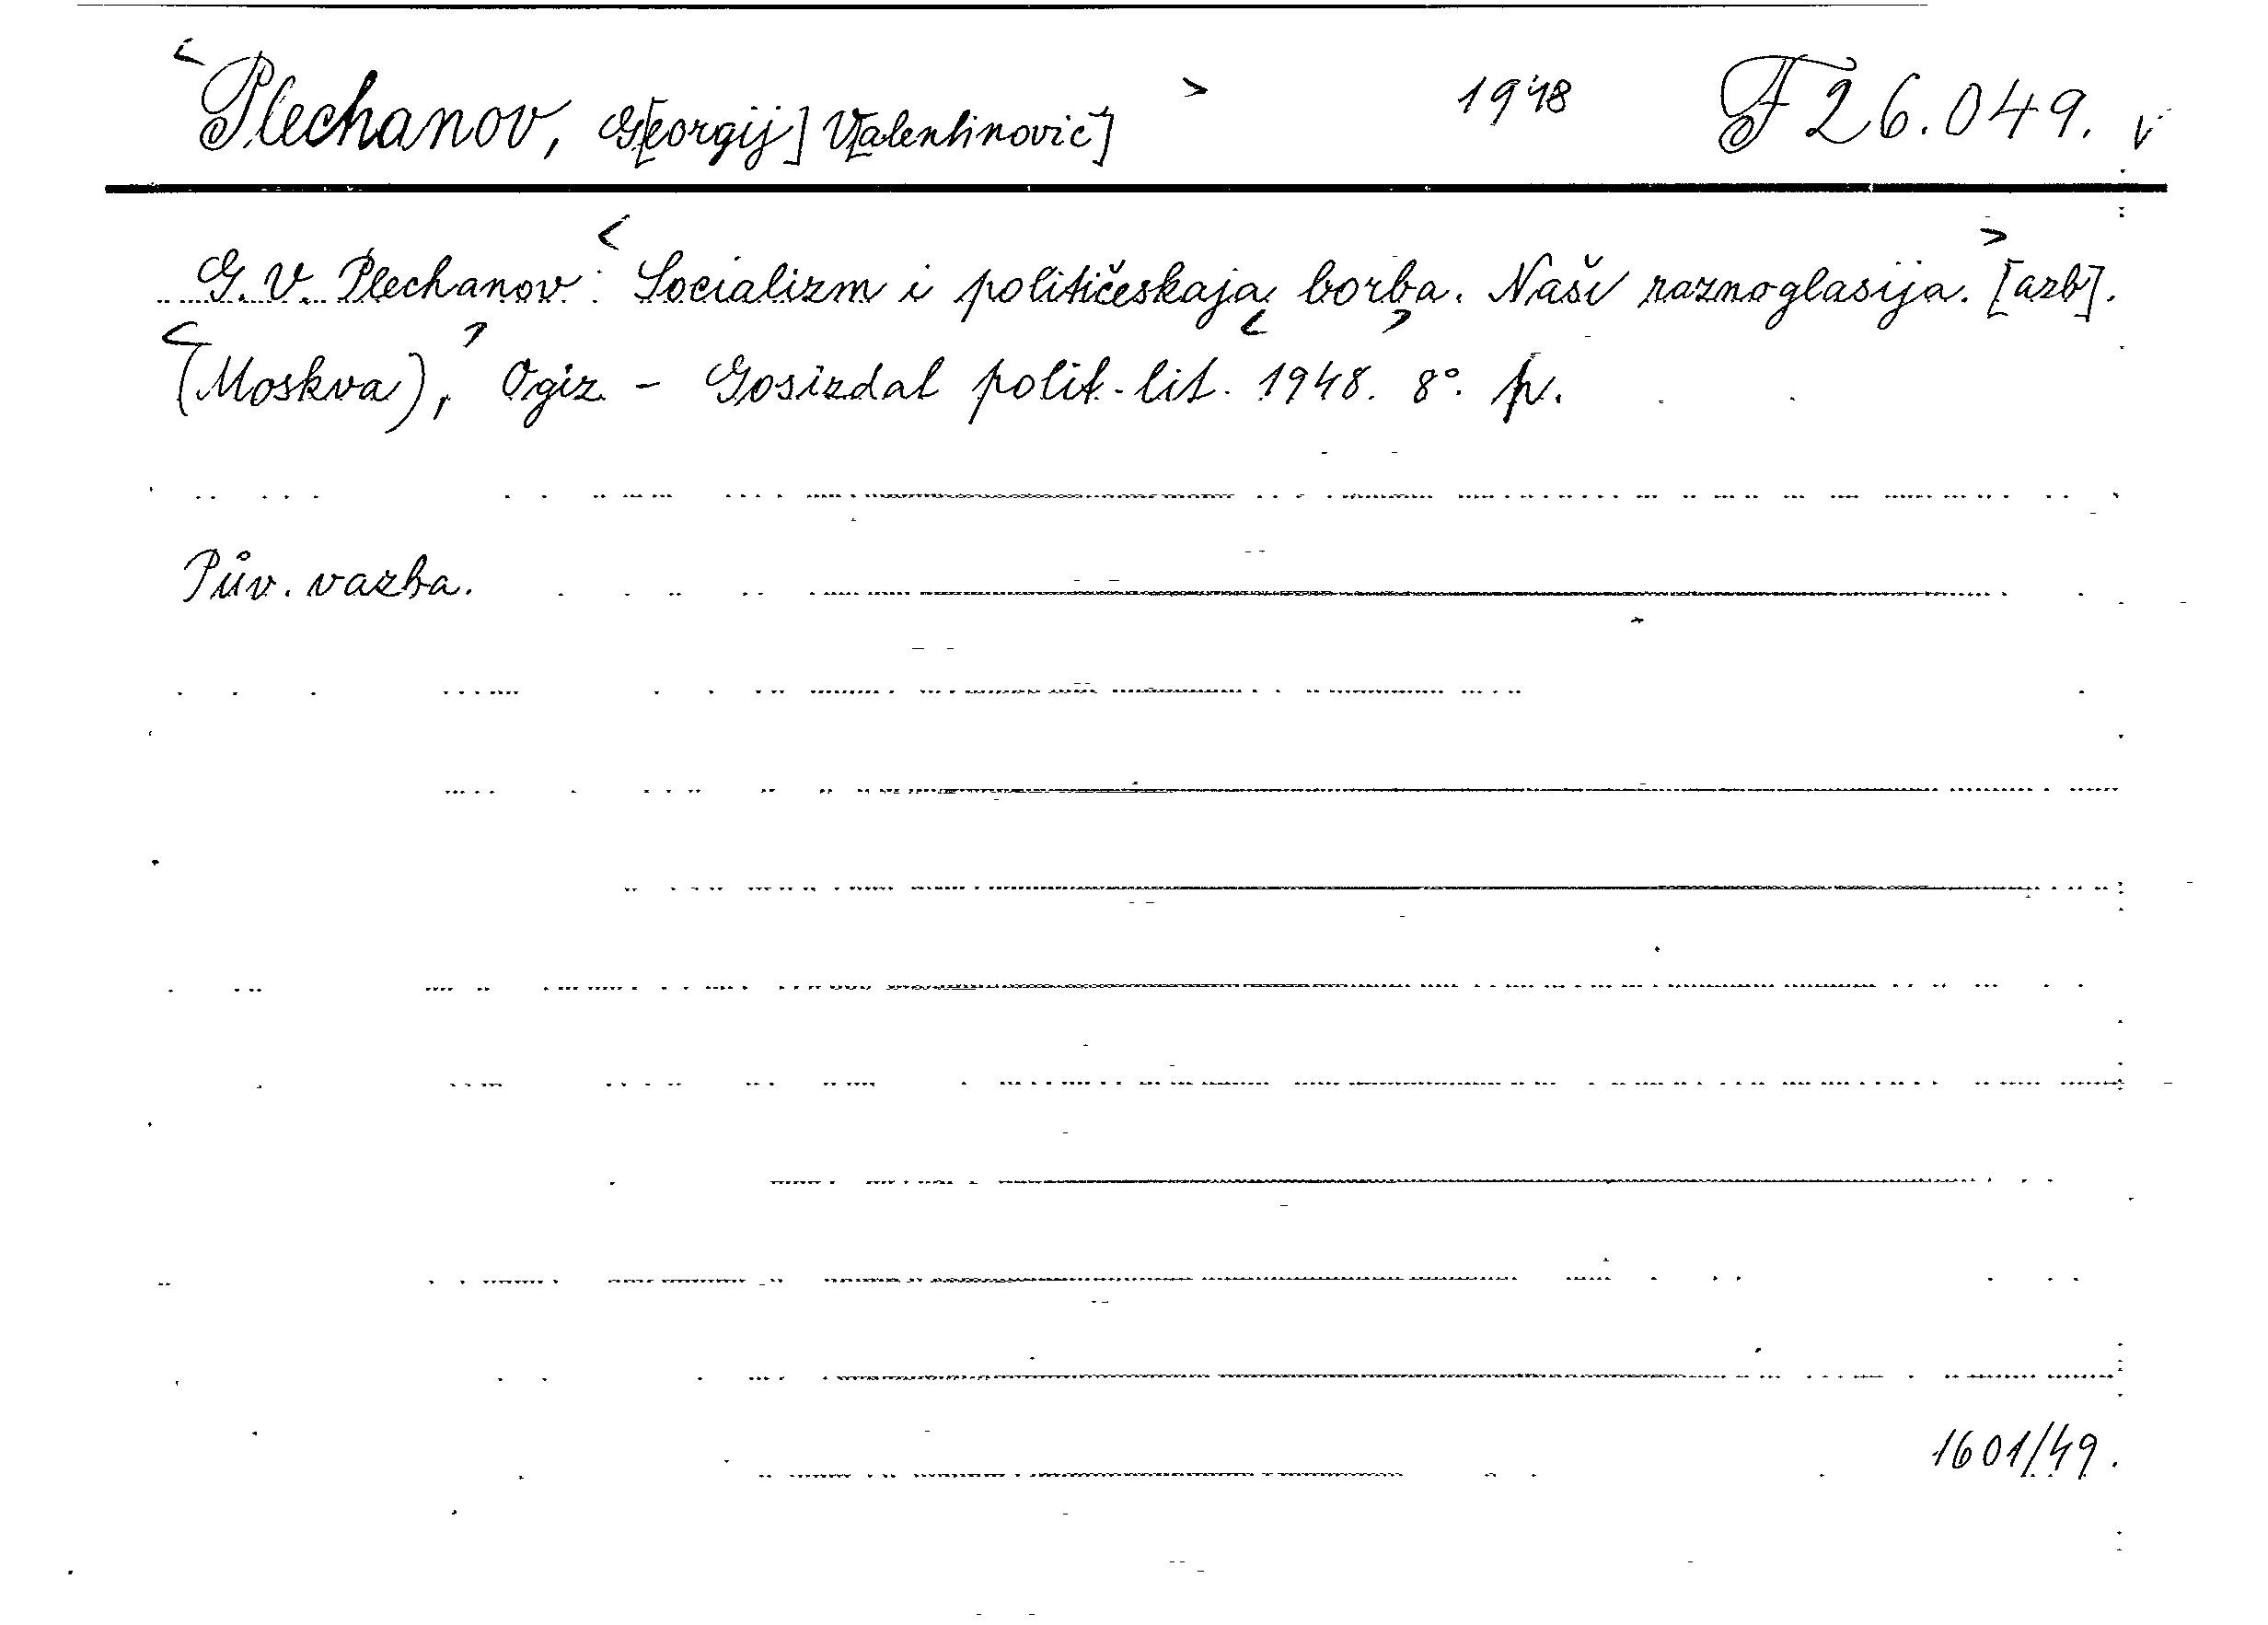 <Plechanov, G[eorgij] V[alentinovič]> 1948 F 26.049. v
G. V. Plechanov: <Socializm i političeskaja borba. Naši raznoglasija.> [azb].
<(Moskva),> Ogiz - Gosizdat polit. lit. <1948.> 8°. p.
Pův. vazba.
1601/49.